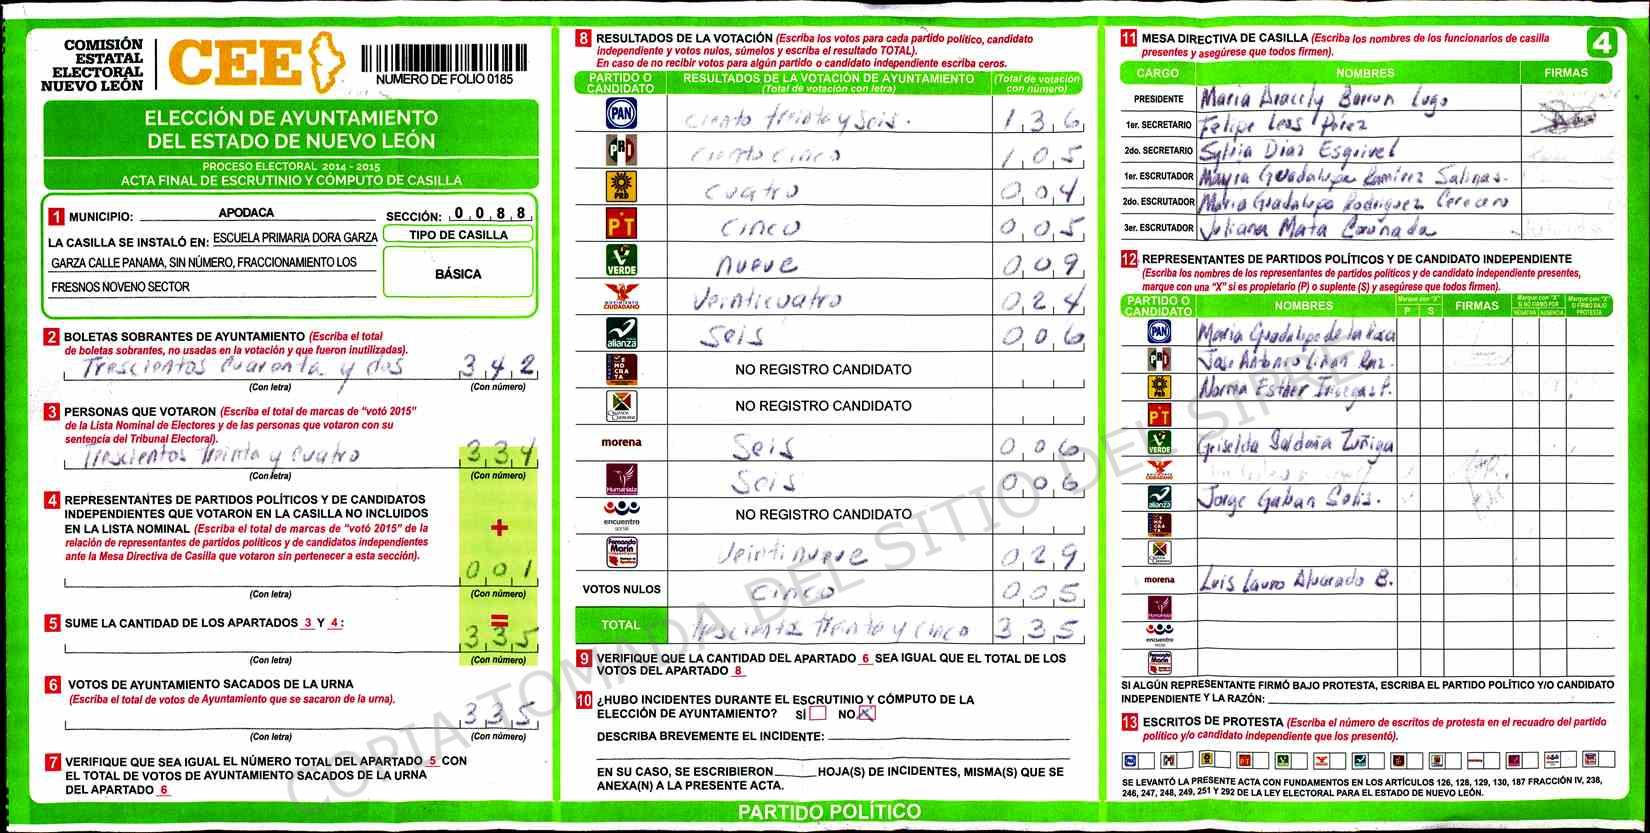 COMISIÓN
ESTATAL
ELECTORAL
NUEVO LEÓN
CEE
NUMERO DE FOLIO 0185
ELECCIÓN DE AYUNTAMIENTO
DEL ESTADO DE NUEVO LEÓN
PROCESO ELECTORAL 2014 - 2015
ACTA FINAL DE ESCRUTINIO Y CÓMPUTO DE CASILLA
1 MUNICIPIO: APODACA SECCIÓN: 0 0 8 8
LA CASILLA SE INSTALÓ EN: ESCUELA PRIMARIA DORA GARZA
GARZA CALLE PANAMA, SIN NÚMERO, FRACCIONAMIENTO LOS
FRESNOS NOVENO SECTOR
TIPO DE CASILLA
BÁSICA
2 BOLETAS SOBRANTES DE AYUNTAMIENTO (Escriba el total
de boletas sobrantes, no usadas en la votación y que fueron inutilizadas).
Trescientos Cuarenta y dos 3 4 2
(Con letra) (Con número)
3 PERSONAS QUE VOTARON (Escriba el total de marcas de "votó 2015"
de la Lista Nominal de Electores y de las personas que votaron con su
sentencia del Tribunal Electoral).
Trescientos treinta y cuatro 3 3 4
(Con letra) (Con número)
4 REPRESENTANTES DE PARTIDOS POLÍTICOS Y DE CANDIDATOS
INDEPENDIENTES QUE VOTARON EN LA CASILLA NO INCLUIDOS
EN LA LISTA NOMINAL (Escriba el total de marcas de "votó 2015" de la
relación de representantes de partidos políticos y de candidatos independientes
ante la Mesa Directiva de Casilla que votaron sin pertenecer a esta sección).
+
0 0 1
(Con letra) (Con número)
5 SUME LA CANTIDAD DE LOS APARTADOS 3 Y 4:
=
3 3 5
(Con letra) (Con número)
6 VOTOS DE AYUNTAMIENTO SACADOS DE LA URNA
(Escriba el total de votos de Ayuntamiento que se sacaron de la urna).
3 3 5
(Con letra) (Con número)
7 VERIFIQUE QUE SEA IGUAL EL NÚMERO TOTAL DEL APARTADO 5 CON
EL TOTAL DE VOTOS DE AYUNTAMIENTO SACADOS DE LA URNA
DEL APARTADO 6
8 RESULTADOS DE LA VOTACIÓN (Escriba los votos para cada partido político, candidato
independiente y votos nulos, súmelos y escriba el resultado TOTAL).
En caso de no recibir votos para algún partido o candidato independiente escriba ceros.
PARTIDO O CANDIDATO RESULTADOS DE LA VOTACIÓN DE AYUNTAMIENTO (Total de votación con letra) (Total de votación con número)
PAN Ciento treinta y Seis. 1 3 6
PRI Ciento Cinco 1 0 5
PRD Cuatro 0 0 4
PT Cinco 0 0 5
VERDE Nueve 0 0 9
MOVIMIENTO CIUDADANO Veinticuatro 0 2 4
alianza Seis 0 0 6
DEMOCRATA NO REGISTRO CANDIDATO
NO REGISTRO CANDIDATO
morena Seis 0 0 6
Humanista Seis 0 0 6
encuentro social NO REGISTRO CANDIDATO
Fernando Marín Veintinueve 0 2 9
VOTOS NULOS Cinco 0 0 5
TOTAL Trescientos treinta y cinco 3 3 5
9 VERIFIQUE QUE LA CANTIDAD DEL APARTADO 6 SEA IGUAL QUE EL TOTAL DE LOS
VOTOS DEL APARTADO 8
10 ¿HUBO INCIDENTES DURANTE EL ESCRUTINIO Y CÓMPUTO DE LA
ELECCIÓN DE AYUNTAMIENTO? SÍ NO X
DESCRIBA BREVEMENTE EL INCIDENTE:
EN SU CASO, SE ESCRIBIERON HOJA(S) DE INCIDENTES, MISMA(S) QUE SE
ANEXA(N) A LA PRESENTE ACTA.
PARTIDO POLÍTICO
4
11 MESA DIRECTIVA DE CASILLA (Escriba los nombres de los funcionarios de casilla
presentes y asegúrese que todos firmen).
CARGO NOMBRES FIRMAS
PRESIDENTE Maria Aracely Barron Lugo
1er. SECRETARIO Felipe Leos Pérez
2do. SECRETARIO Sylvia Diaz Esquivel
1er. ESCRUTADOR Mayra Guadalupe Ramírez Salinas.
2do. ESCRUTADOR Maria Guadalupe Rodriguez Cerecero
3er. ESCRUTADOR Juliana Mata Coronada
12 REPRESENTANTES DE PARTIDOS POLÍTICOS Y DE CANDIDATO INDEPENDIENTE
(Escriba los nombres de los representantes de partidos políticos y de candidato independiente presentes,
marque con una "X" si es propietario (P) o suplente (S) y asegúrese que todos firmen).
PARTIDO O CANDIDATO NOMBRES Marque con "X" P S FIRMAS Marque con "X" SI NO FIRMO POR NEGATIVA AUSENCIA Marque con "X" SI FIRMO BAJO PROTESTA
PAN Maria Guadalupe de la Rosa
PRI Jose Antonio Liñan Ruz.
PRD Norma Esther
PT
VERDE Griselda Saldaña Zuñiga
CIUDADANO
alianza Jorge Gaban Solis.
morena Luis Lauro Alvarado B.
encuentro
SI ALGÚN REPRESENTANTE FIRMÓ BAJO PROTESTA, ESCRIBA EL PARTIDO POLÍTICO Y/O CANDIDATO
INDEPENDIENTE Y LA RAZÓN:
13 ESCRITOS DE PROTESTA (Escriba el número de escritos de protesta en el recuadro del partido
político y/o candidato independiente que los presentó).
SE LEVANTÓ LA PRESENTE ACTA CON FUNDAMENTOS EN LOS ARTÍCULOS 126, 128, 129, 130, 187 FRACCIÓN IV, 238,
246, 247, 248, 249, 251 Y 292 DE LA LEY ELECTORAL PARA EL ESTADO DE NUEVO LEÓN.
COPIA TOMADA DEL SITIO DEL SIPRE